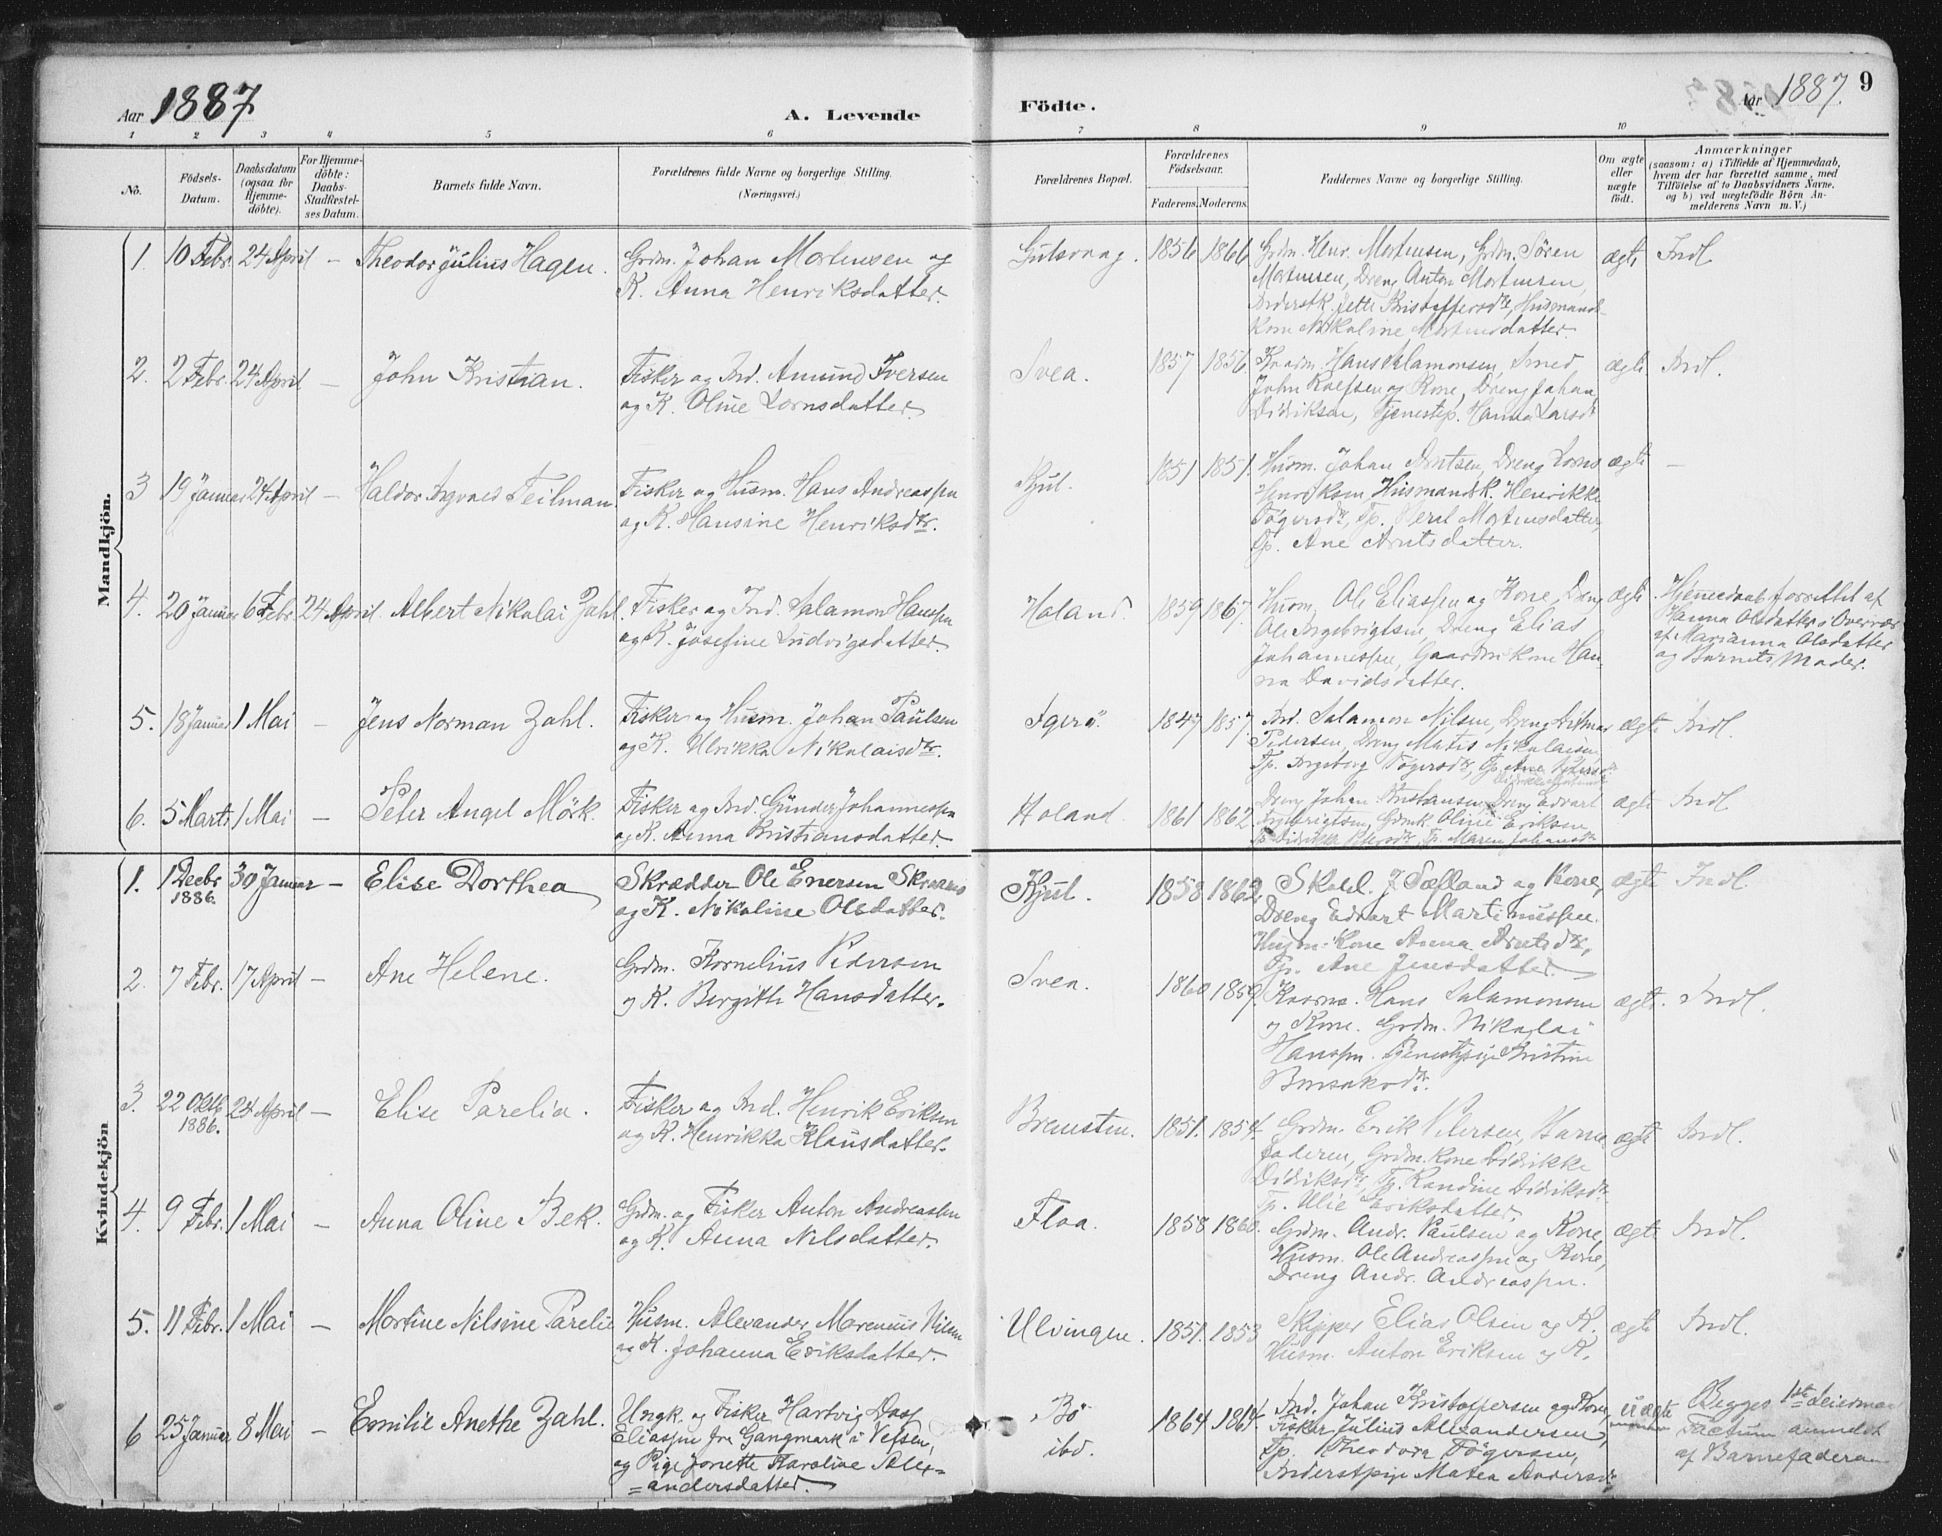 Aar 1887
A. Levende
Födte.
Aar 1887.
9
1 2 3 4 5 6 7 8 9 10
No.
Födsels-
Datum.
Daabsdatum
(ogsaa for
Hjemme-
döbte).
For Hjemme-
döbte:
Daabs-
Stadfæstel-
ses Datum.
Barnets fulde Navn.
Forældrenes fulde Navne og borgerlige Stilling.
(Næringsvei.)
Forældrenes Bopæl.
Forældrenes
Födselsaar.
Faderens. Moderens.
Faddernes Navne og borgerlige Stilling.
Om ægte
eller
uægte
födt.
Anmærkninger
(saasom: a) i Tilfælde af Hjemmedaab,
hvem der har forrettet samme, med
Tilföielse af to Daabsvidners Navne,
og b) ved uægtefödte Börn An-
melderens Navn m. V.)
Mandkjön.
1. 10 Febr. 24 April — Theodor Julius Hagen. Grdm. Johan Mortensen og
K. Anna Henriksdatter.
1856 1866 Grdm. Henr. Mortensen, Grdm. Sören
Mortensen, Dreng Anton Mortensen,
Kone Nikoline Mortensdatter.
ægte Indl
2. 2 Febr. 24 April — John Kristian. Fisker og Ind. Amund Iversen
og K. Oline Lornsdatter.
Svea. 1857 1856. Hans Salamonsen, Smed
John Rolfsen og Kone, Dreng Johan
Didriksen, Tjenestep. Hanna Larsdr
ægte Indl.
3 19 Januar 24 April — Haldor Ingvald Teilman. Fisker og Husm. Hans Andreassen
og K. Hansine Henriksdtr.
Kjul. 1851 1851. Husm. Johan Arntsen, Dreng Lorns
Henriksen, Husmandsk. Henrikke
Tögersdr, Tp. Berit Mortensdatter,
Tp. Ane Arntsdatter.
ægte —
4. 20 Januar 6 Febr. 24 April. Albert Nikolai Zahl. Fisker og Ind. Salamon Hanssen
og K. Josefine Ludvigsdatter.
Holand. 1859 1867. Husm. Ole Eliassen og Kone, Dreng
Ole Ingebrigtsen, Dreng Elias
Johannessen, Gaardm. kone Han
na Davidsdatter.
ægte Hjemmedaab forrettet af
Hanna Olsdatter i Overvær
af Marianna Olsdatter
og Barnets Moder.
5. 18 Januar 1 Mai — Jens Norman Zahl. Fisker og Husm. Johan Paulsen
og K. Ulrikka Nikolaisdtr.
Igerö. 1847 1857. Ind. Salamon Nilsen, Dreng Ditmar
Pedersen, Dreng Matis Nikolaisen,
Tp. Ingeborg Tögersdr, Tp. Ane
ægte Indl.
6. 5 Marts 1 Mai — Peter Angel Mörk. Fisker og Ind. Günder Johannessen
og K. Anna Kristiansdatter.
Holand. 1861 1862. Dreng Johan Kristiansen, Dreng Edvart
Ingebrigtsen, Grdmk. Oline Eriksen
Tp. Maren Johansdr
ægte Indl
Kvindekjön
1. 1 Decbr 30 Januar — Elise Dorthea Skrædder Ole Enersen Skraanes
1886. og K. Nikoline Olsdatter.
Kjul. 1858 1862 Skolel. J. Sæfland og Kone,
Dreng Edvart Martinussen.
Husm.-Kone Anna Arntsdtr,
Tp. Ane Jensdatter
ægte Indl.
2. 7 Febr. 17 April — Ane Helene. Grdm. Kornelius Pedersen
og K. Bergith Hansdatter.
Svea. 1860 1859. Hans Salamonsen
og Kone. Grdm. Nikolai
Hanssen. Tjenestepige Kristine
ægte. Indl.
3. 22 Oktb 24 April — Elise Parelia. Fisker og Ind. Henrik Eriksen
1886. og K. Henrikka Klausdatter.
Bremsten. 1851. 1854. Grdm. Erik Petersen, Barne
faderen, Grdm. Kone Didrikke
Didriksdr, Tp. Randine Didriksdr.
Tp. Ulie Eriksdatter.
ægte Indl.
4. 9 Febr. 1 Mai — Anna Oline Bek. Grdm. og Fisker Anton Andreassen
og K. Anna Nilsdatter.
Floa. 1858 1860. Grdm. Andr. Paulsen og Kone,
Husm. Ole Andreassen og Kone,
Dreng Andr. Andreassen.
ægte Indl.
5. 11 Febr. 1 Mai — Mortine Nilsine Parelie Husm. Alexander Marenius Nilsen
og K. Johanna Eriksdatter.
Ulvingen. 1851. 1853 Skipper Elias Olsen og K.
Husm. Anton Eriksen og K.
ægte Indl.
6 25 Januar 8 Mai — Emilie Anethe Zahl. Ungk. og Fisker Hartvig Dass
Eliassen fra Gangmark i Vefsen,
og Pige Jonette Karoline Alex=
=andersdatter.
Bö
ibd.
1864. 1864. Ind. Johan Kristoffersen og Kone,
Fisker Julius Alexandersen,
Tp. Theodora Tögersen,
Inderstpige Matea Andersdr
uægte Begges 1ste Leiermaal
Factum anmeldt
af Barnefaderen